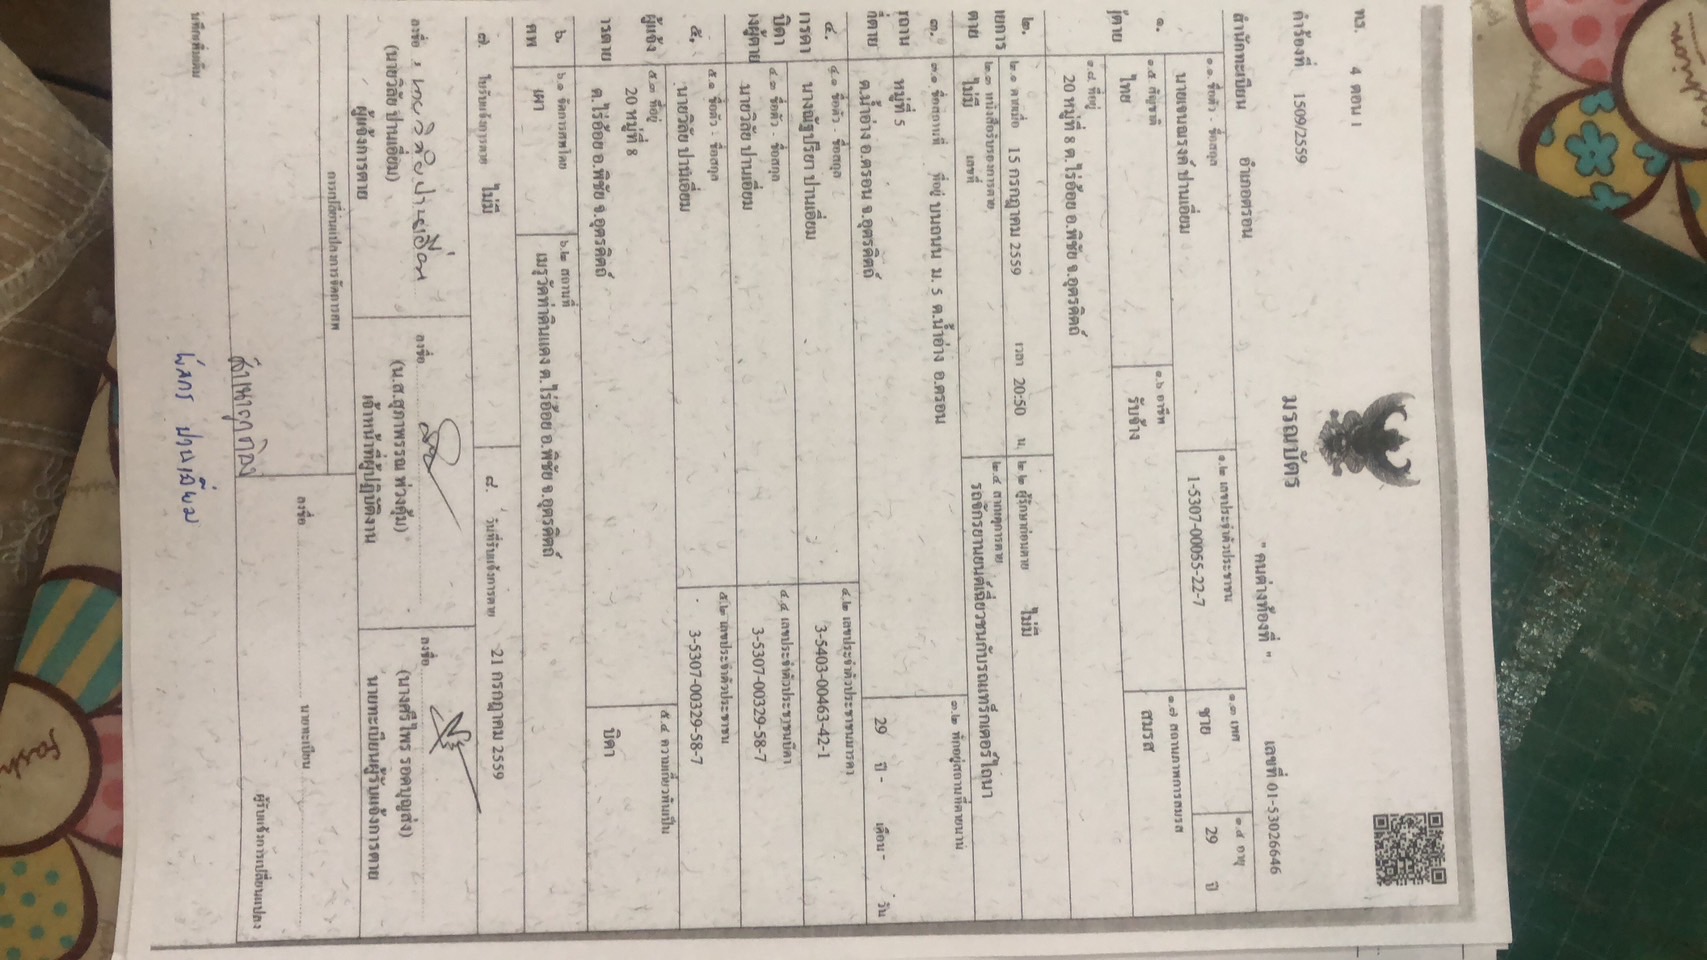 ทร. 4 ตอน 1
คำร้องที่ 1509/2559
มรณบัตร
" คนต่างท้องที่ "
เลขที่ 01-53026646
สำนักทะเบียน อำเภอตรอน
๑.
ผู้ตาย
๑.๑ ชื่อตัว - ชื่อสกุล
นายเจนณรงค์ ปานเอี่ยม
๑.๒ เลขประจำตัวประชาชน
1-5307-00055-22-7
๑.๓ เพศ
ชาย
๑.๔ อายุ
29 ปี
๑.๕ สัญชาติ
ไทย
๑.๖ อาชีพ
รับจ้าง
๑.๗ สถานภาพการสมรส
สมรส
๑.๘ ที่อยู่
20 หมู่ที่ 8 ต.ไร่อ้อย อ.พิชัย จ.อุตรดิตถ์
๒.
ยการ
ตาย
๒.๑ ตายเมื่อ 15 กรกฎาคม 2559 เวลา 20:50 น.
๒.๒ ผู้รักษาก่อนตาย ไม่มี
๒.๓ หนังสือรับรองการตาย เลขที่
ไม่มี
๒.๔ สาเหตุการตาย
รถจักรยานยนต์เฉี่ยวชนกับรถแทร็กเตอร์ไถนา
๓.
ที่ตาย
๓.๑ ชื่อสถานที่ ที่อยู่ บนถนน ม. 5 ต.น้ำอ่าง อ.ตรอน
หมู่ที่ 5
ต.น้ำอ่าง อ.ตรอน จ.อุตรดิตถ์
๓.๒ พักอยู่สถานที่ตายนาน
29 ปี - เดือน - วัน
๔.
มารดา
บิดา
ของผู้ตาย
๔.๑ ชื่อตัว - ชื่อสกุล
นางณัฐปรียา ปานเอี่ยม
๔.๒ เลขประจำตัวประชาชนมารดา
3-5403-00463-42-1
๔.๓ ชื่อตัว - ชื่อสกุล
นายวิสัย ปานเอี่ยม
๔.๔ เลขประจำตัวประชาชนบิดา
3-5307-00329-58-7
๕.
ผู้แจ้ง
การตาย
๕.๑ ชื่อตัว - ชื่อสกุล
นายวิสัย ปานเอี่ยม
๕.๒ เลขประจำตัวประชาชน
3-5307-00329-58-7
๕.๓ ที่อยู่
20 หมู่ที่ 8
ต.ไร่อ้อย อ.พิชัย จ.อุตรดิตถ์
๕.๔ ความเกี่ยวพันเป็น
บิดา
๖.
ศพ
๖.๑ จัดการศพโดย
เผา
๖.๒ สถานที่
เมรุวัดท่าดินแดง ต.ไร่อ้อย อ.พิชัย จ.อุตรดิตถ์
๗. ใบรับแจ้งการตาย ไม่มี
๘. วันที่รับแจ้งการตาย 21 กรกฎาคม 2559
ลงชื่อ นายวิสัย ปานเอี่ยม
(นายวิสัย ปานเอี่ยม)
ผู้แจ้งการตาย
ลงชื่อ
(น.ส.สุภาพรรณ ห่วงคุ้ม)
เจ้าหน้าที่ผู้ปฏิบัติงาน
ลงชื่อ
(นางศรีไพร รอดบุญส่ง)
นายทะเบียนผู้รับแจ้งการตาย
การเปลี่ยนแปลงการจัดการศพ
ลงชื่อ นายทะเบียน
ผู้รับแจ้งการเปลี่ยนแปลง
สำเนาถูกต้อง
ปานเอี่ยม
บันทึกเพิ่มเติม